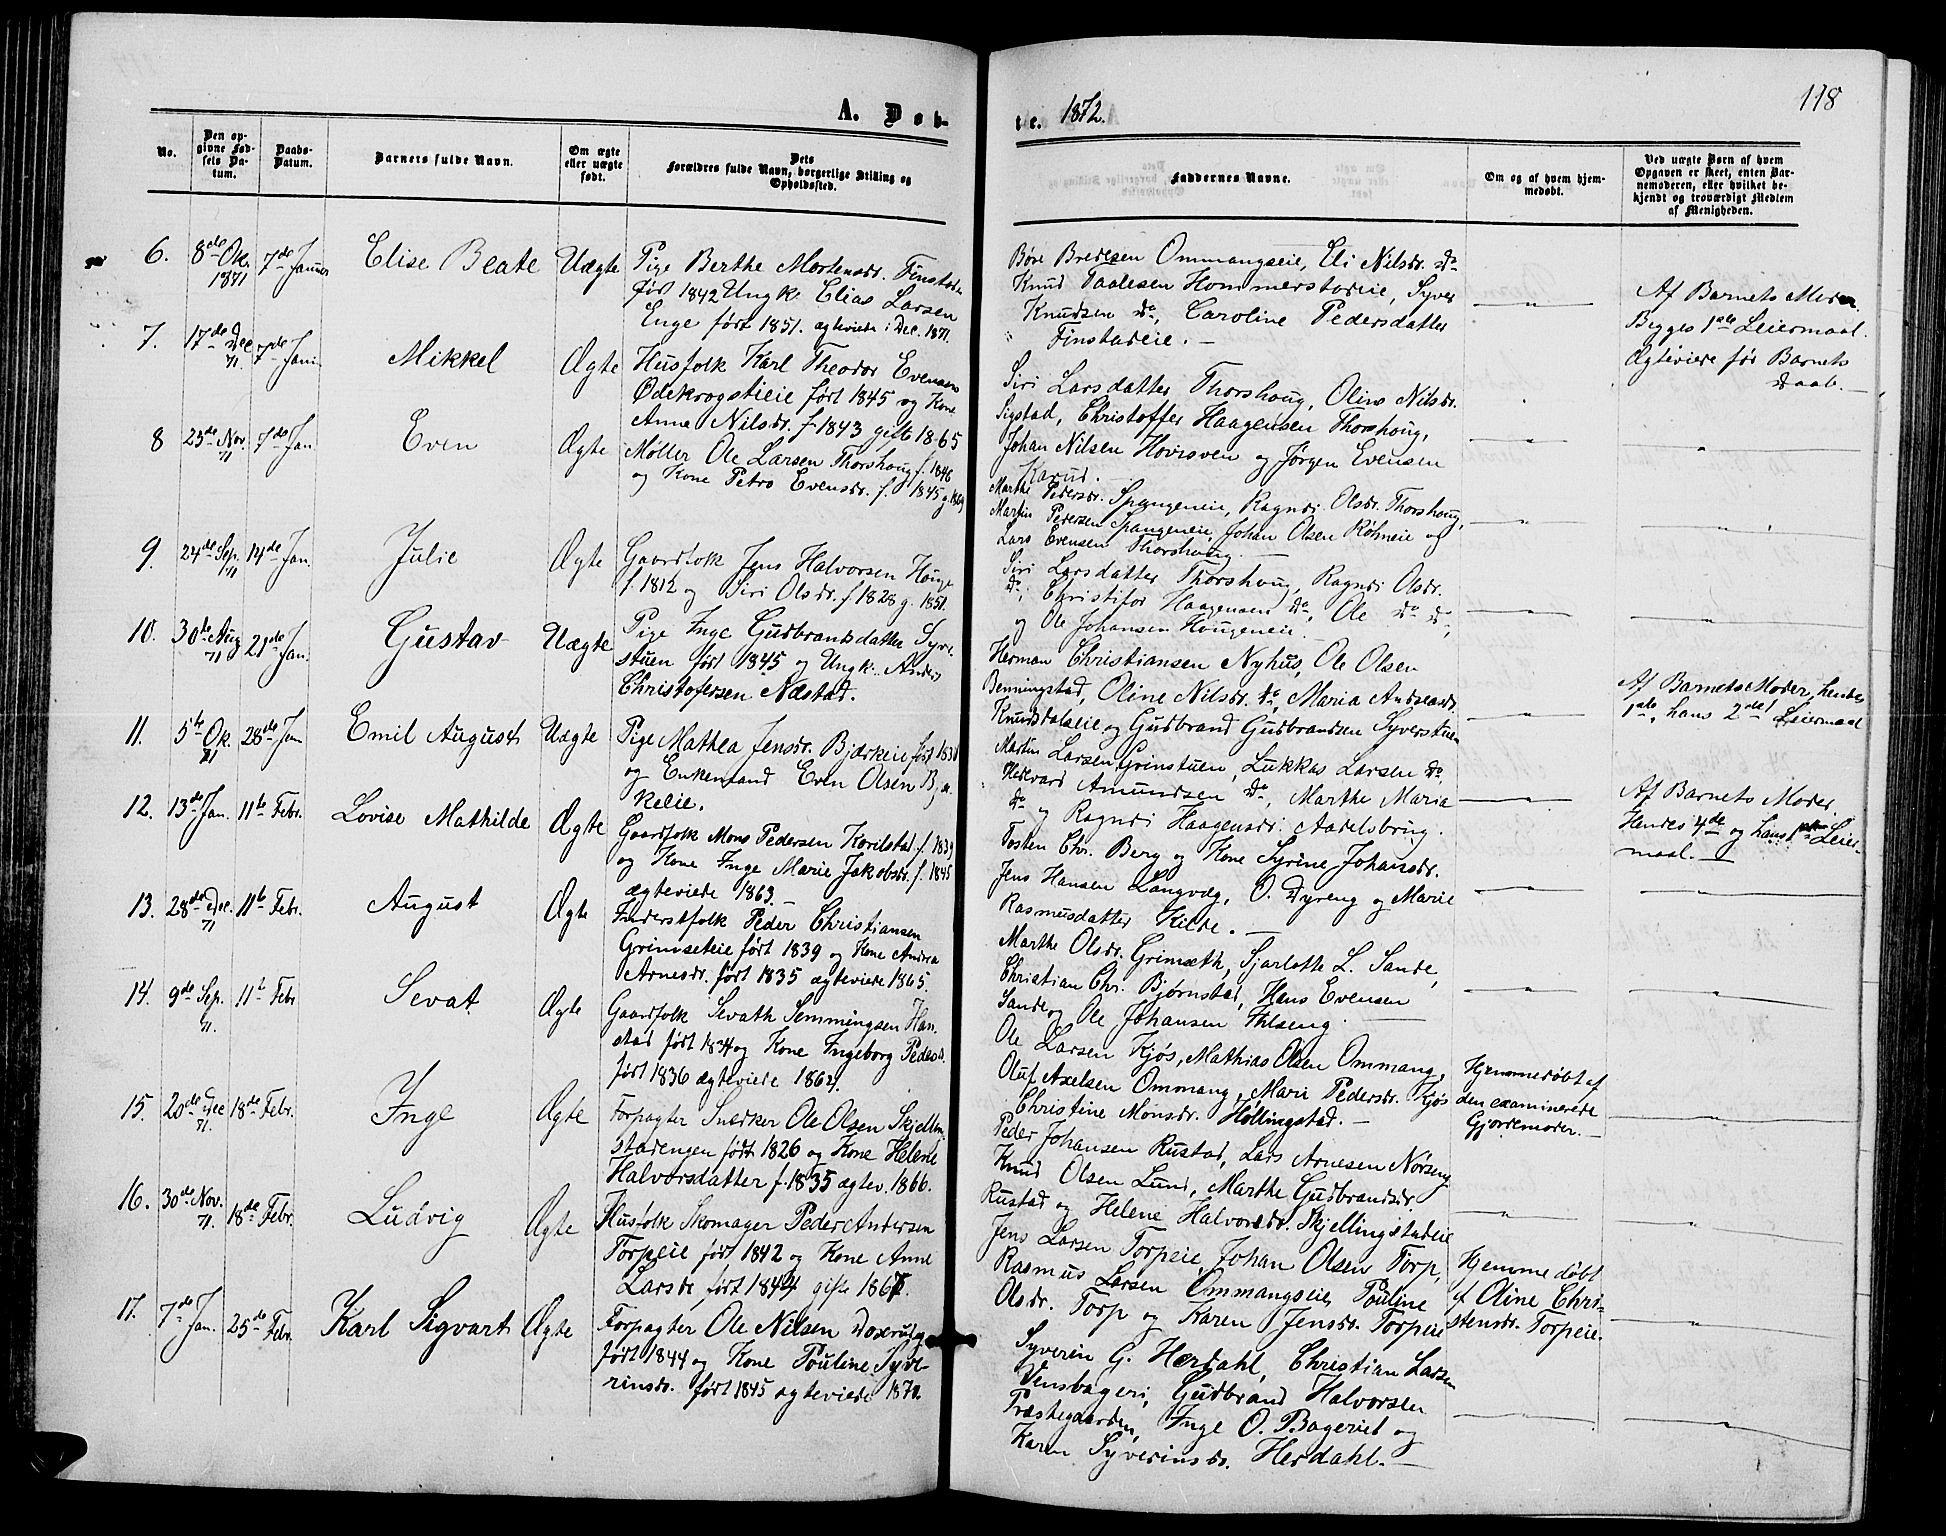 A. Døb-
No.
Den op-
givne Fød-
sels Da-
tum.
Daabs-
Datum.
Barnets fulde Navn.
Om ægte
eller uægte
født.
Dets
Forældres fulde Navn, borgerlige Stilling og
Opholdssted.
6. 8de Ok. 1871 7de Januar Elise Beate Uægte
Pige Berthe Mortensdr. Finstadei
født 1842 Ungk. Elias Larsen
Enge født 1851. ægteviede i Dec. 1871.
7. 17de Dec. 71. 7de Jan. Mikkel Ægte
Husfolk Karl Theodor Evensen
Ødekrogstieie født 1845 og Kone
Anne Nilsdr. f. 1843 gift 1865
8 23de Nov. 71 7de Jan Even Ægte
Møller Ole Larsen Thorshoug f. 1846
og Kone Petro Evensdr. f. 1845 g. 1869
9. 24de Sep. 71 14de Jan. Julie Ægte
Gaardfolk Jens Halvorsen Houge
f. 1812 og Siri Olsdr. f 1828 g. 1851.
10. 30te Aug 71 21de Jan. Gustav Uægte
Pige Inge Gudbrandsdatter Syve-
stuen født 1845 og Ungk. Anders
Christofersen Næstad.
11. 5te Ok. 71 28de Jan Emil August Uægte
Pige Mathea Jensdr. Bjærkeie født 1831
og Enkemand Even Olsen Bjæ-
keeie.
12. 13de Jan. 11te Febr. Lovise Mathilde Ægte
Gaardfolk Mons Pedersen Korilstad f. 1839
og Kone Inge Marie Jakobsdr. f. 1845
ægteviede 1863.
13. 28de Dec. 71 11te Febr. August Ægte
Inderstfolk Peder Christiansen
Grimseteie født 1839 og Kone Andrea
Arnesdr. født 1835 ægteviede 1865.
14. 9de Sep. 71. 11te Febr Sevat Ægte
Gaardfolk Sevath Semmingsen Han-
stad født 1834 og Kone Ingeborg Pedersd.
født 1836 ægteviede 1864.
15. 20de Dec 71. 18de Febr. Inge Ægte
Forpagter Snedker Ole Olsen Skjelling-
stadengen født 1826 og Kone Helene
Halvorsdatter f. 1835 ægtev. 1866.
16. 30de Nov. 71. 18de Febr. Ludvig Ægte
Husfolk Skomager Peder Andersen
Torpeie født 1842 og Kone Anne
Larsdr. født 1844 gifte 1867.
17. 7de Jan. 25de Febr. Karl Sigvart Ægte
Forpagter Ole Nilsen Doxrud
født 1844 og Kone Pouline Syve-
rinsdr. født 1845 ægteviede 1870.
te. 1872.
118
Faddernes Navne.
Om og af hvem hjem-
medøbt.
Ved uægte Børn af hvem
Opgaven er skeet, enten Bar-
nemoderen, eller hvilket be-
kjendt og troværdigt Medlem
af Menigheden.
Børe Bredesen Ommangseie, Eli Nilsdr. do
Knud Paalesen Hommerstadeie, Syver
Knudsen do, Caroline Pedersdatter
Finstadeie.
Af Barnets Moder.
Begges 1ste Leiermaal.
Ægteviede før Barnets
Daab.
Siri Larsdatter Thorshoug, Oline Nilsdr.
Sigstad, Christoffer Haagensen Thorshoug,
Johan Nilsen Hovisven og Jørgen Evensen
Karud.
Marthe Pedersdr. Spangeneie, Ragndi Olsdr. Thorshoug,
Martin Pedersen Spangeneie, Johan Olsen Røhneie og
Lars Evensen Thorshoug.
Siri Larsdatter Thorshoug, Ragndi Olsdr.
do, Christifor Haagensen do, Ole do do,
og Ole Johansen Hougeneie.
Herman Christiansen Nyhus, Ole Olsen
Benningstad, Oline Nilsdr. do, Maria Andreasdr.
Knudsdalseie og Gudbrand Gudbrandsen Syverstuen
Af Barnets Moder, hendes
1ste, hans 2det Leiermaal
Martin Larsen Grinstuen, Lukkas Larsen do,
Hellevard Amundsen do, Marthe Maria
do og Ragndi Haagensdr. Aadelsbrug.
Af Barnets Moder,
Hendes 4de og hans 1ste Leier-
maal.
Tosten Chr. Berg og Kone Syrine Johansdr.
Jens Hansen Langvæg, O. Dyreng og Marie
Rasmusdatter Kilde.
Marthe Olsdr. Grimseth, Sjarlotte L. Sande,
Christian Chr. Bjørnstad, Hans Evensen
Sande og Ole Johansen Ihlseng.
Ole Larsen Kjøs, Mathias Olsen Ommang,
Oluf Axelsen Ommang, Mari Pedersdr. Kjøs
Christine Monsdr. Høllingstad.
Hjemmedøbt af
den examinerede
Gjordemoder.
Peder Johansen Rustad, Lars Arnesen Nørseng
Knud Olsen Lund, Marthe Gudbrandsdr.
Rustad og Helene Halvorsdr. Skjellingstadeie
Jens Larsen Torpeie, Johan Olsen Torp,
Rasmus Larsen Ommangseie, Pouline
Olsdr. Torp og Karen Jensdr. Torpeie
Hjemmedøbt
af Oline Chri-
stensdr. Torpeie.
Syverin G. Herdahl, Christian Larsen
Vensbageri, Gudbrand Halvorsen
Præstegaarden, Inge O. Bageriet og
Karen Syverinsdr. Herdahl.